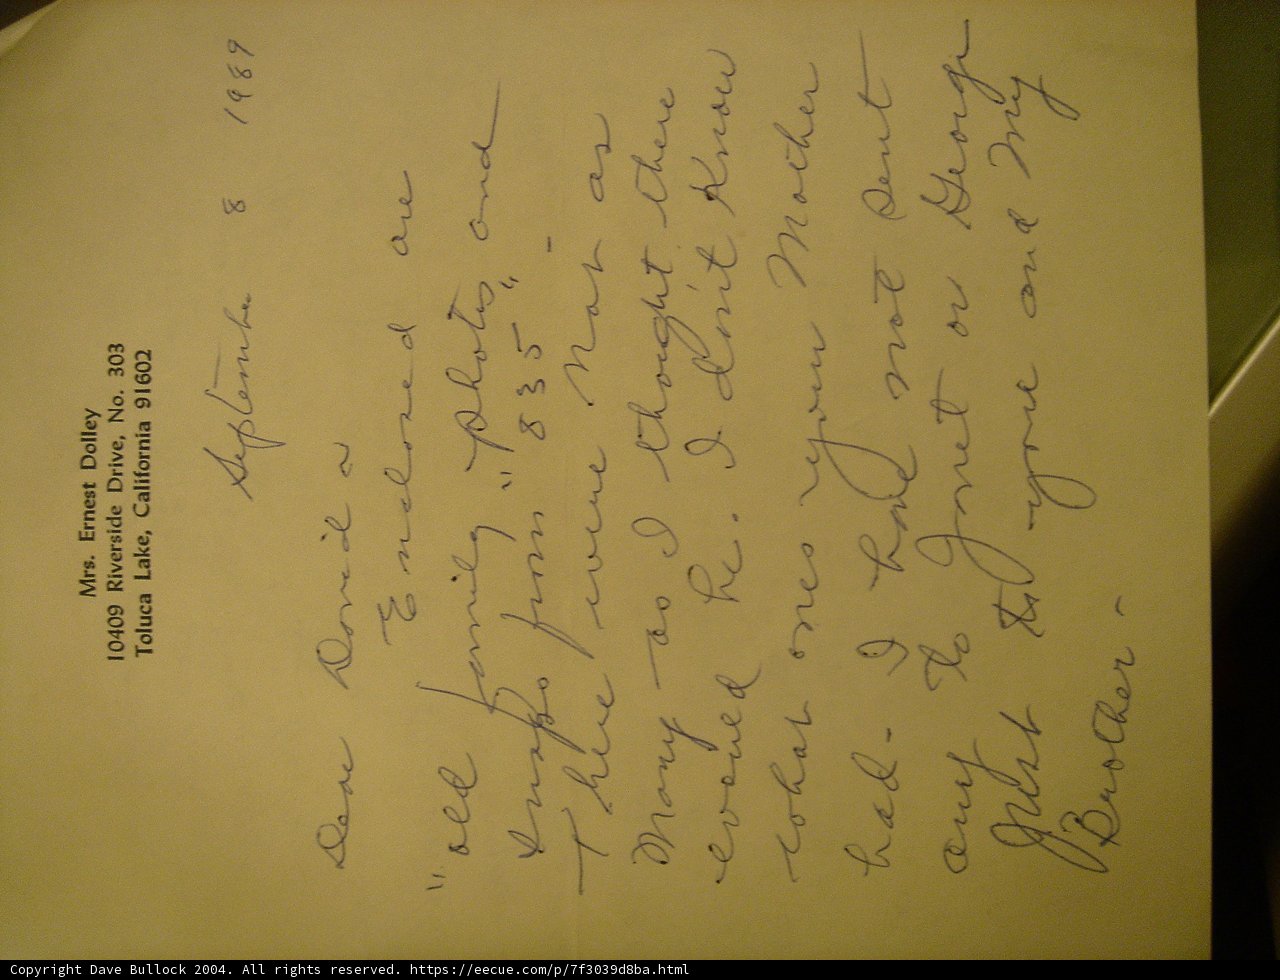 Mrs. Ernest Dolley
10409 Riverside Drive, No. 303
Toluca Lake, California 91602
September 8 1989
Dear David
Enclosed are
"old family" photos and
snaps from "835" -
There were not as
Many as I thought there
would be. I don't Know
what ones your Mother
had - I have not sent
any to Janet or George
Just to you and My
Brother -
Copyright Dave Bullock 2004. All rights reserved. https://eecue.com/p/7f3039d8ba.html